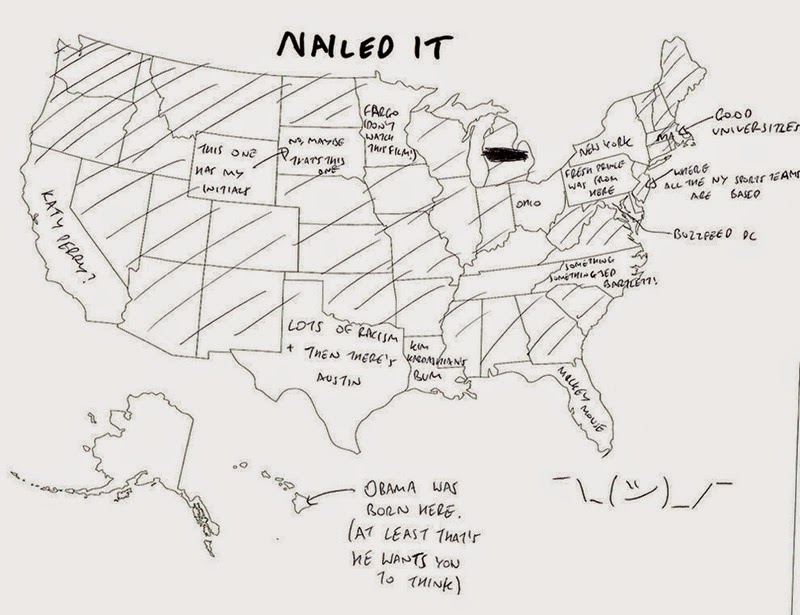 NAILED IT
FARGO
(DON'T
WATCH
THIS FILM!)
THIS ONE
HAS MY
INITIALS
NO, MAYBE
THAT'S THIS
ONE
NEW YORK
FRESH PRINCE
WAS FROM
HERE
MA
GOOD
UNIVERSITIES
WHERE
ALL THE NY SPORTS TEAMS
ARE BASED
OHIO
BUZZFEED DC
KATY PERRY?
SOMETHING
SOMETHING JED
BARTLETT!
LOTS OF RACISM
+ THEN THERE'S
AUSTIN
KIM
KARDASHIAN'S
BUM
MICKEY MOUSE
OBAMA WAS
BORN HERE.
(AT LEAST THAT'S
HE WANTS YOU
TO THINK)
¯\_(ツ)_/¯